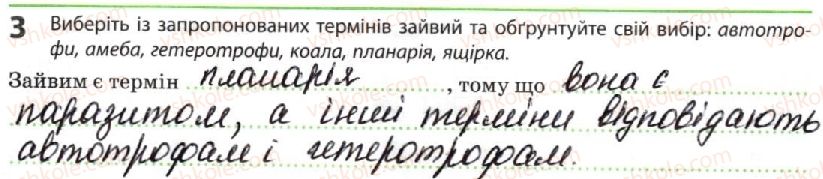 3 Виберіть із запропонованих термінів зайвий та обґрунтуйте свій вибір: автотро-
фи, амеба, гетеротрофи, коала, планарія, ящірка.
Зайвим є термін планарія, тому що вона є
паразитом, а інші терміни відповідають
автотрофам і гетеротрофам.